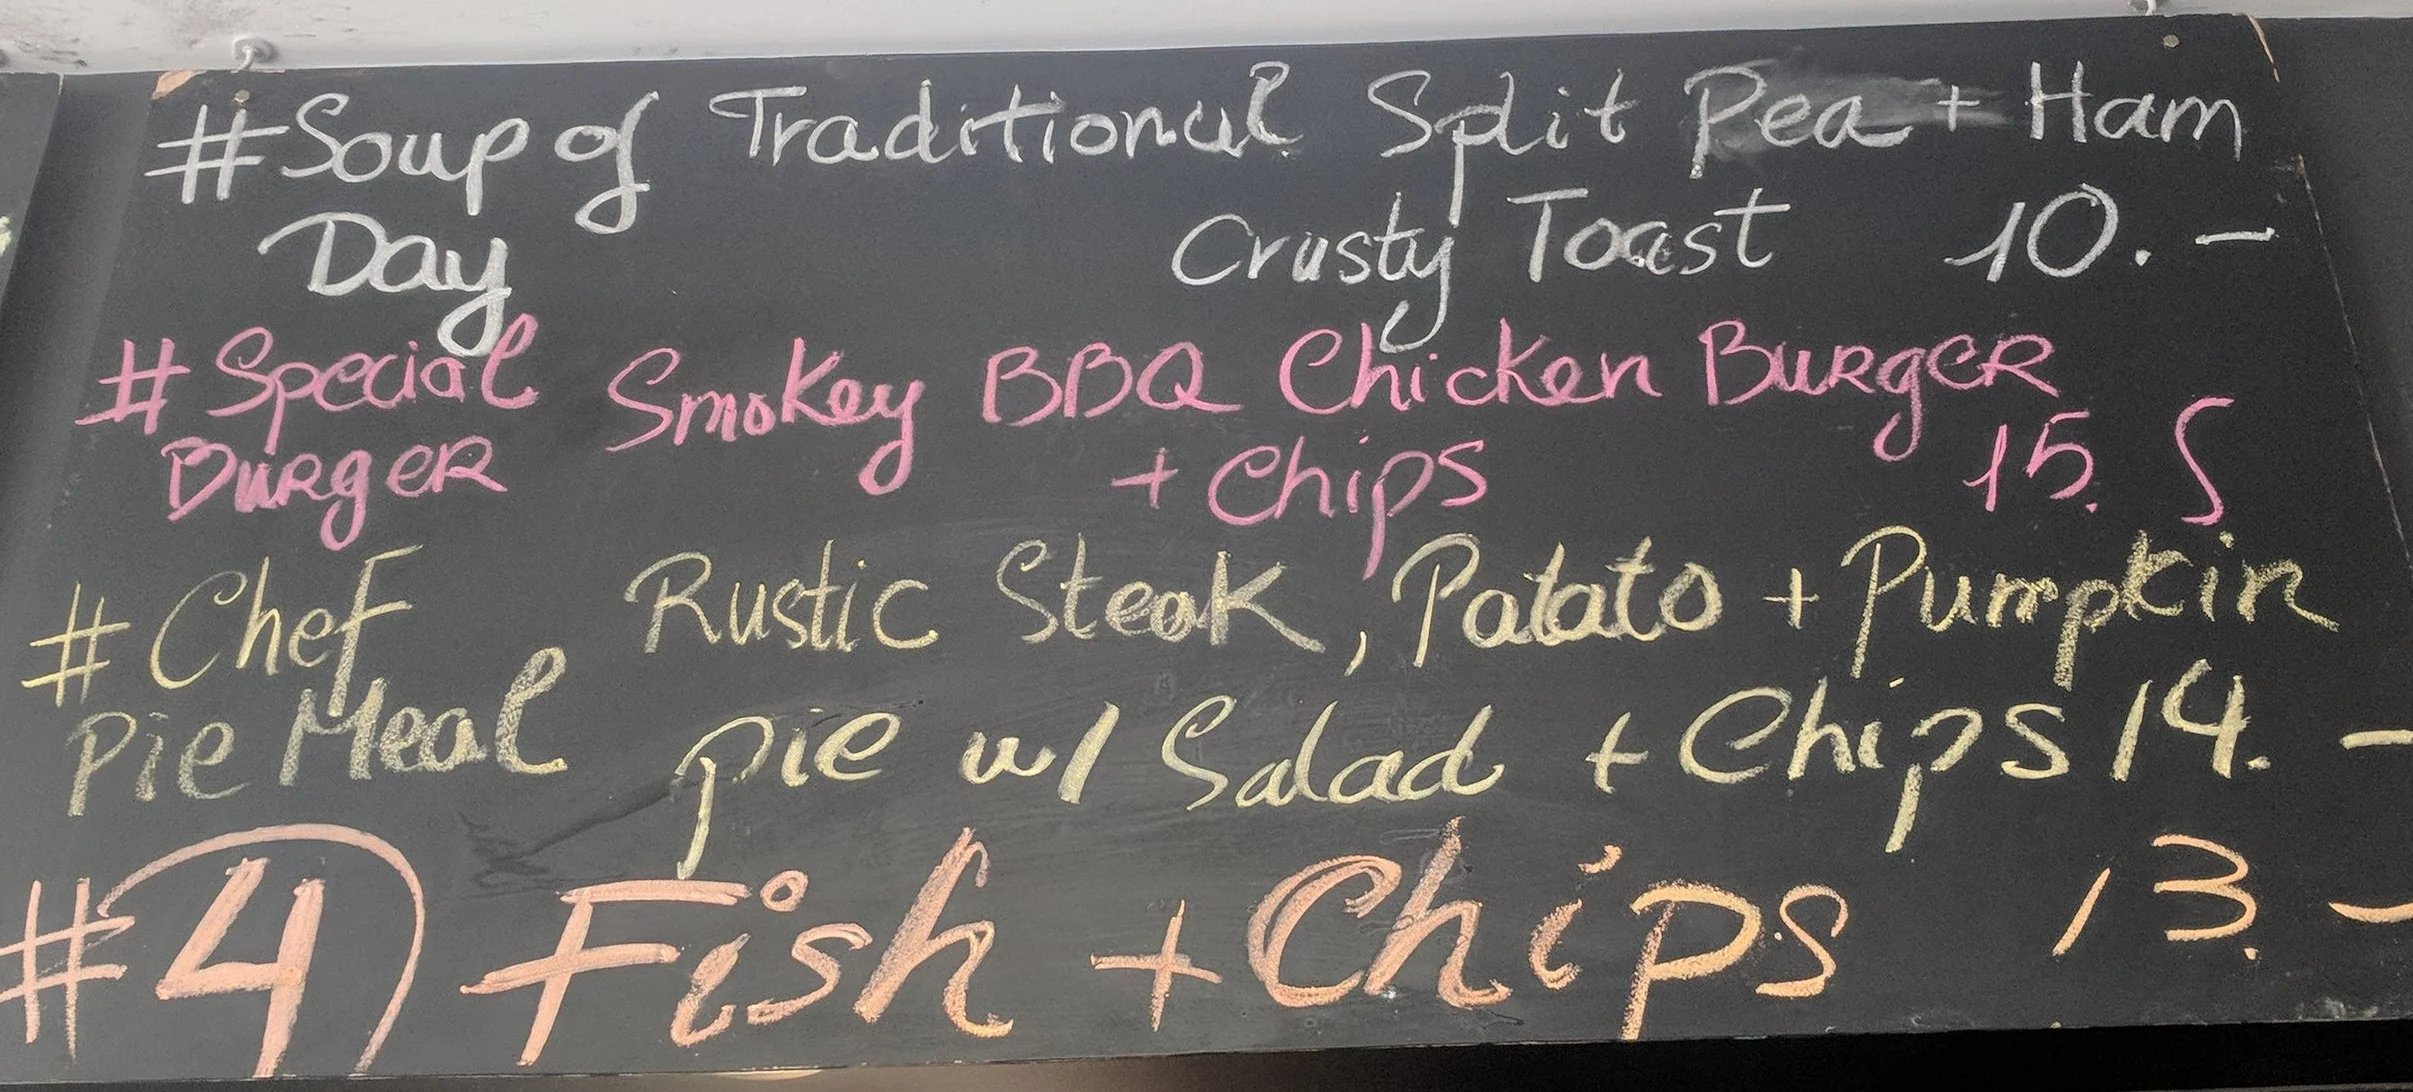 #Soup of Traditional Split Pea + Ham
Day Crusty Toast 10.-
#Special Smokey BBQ Chicken BURgER
BURgER + Chips 15.5
#Chef Rustic Steak, Patato + Pumpkin
Pie Meal pie w/ Salad + Chips 14.-
#4 Fish + Chips 13.-